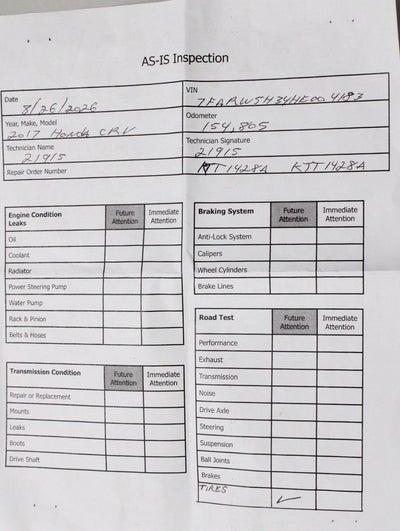 AS-IS Inspection
Date 8/26/2026
VIN 7FARW5H34HE004183
Year, Make, Model 2017 HONDA CRV
Odometer 154,805
Technician Name 21915
Technician Signature 21915
Repair Order Number
KJT1428A
Engine Condition Future Attention Immediate Attention
Leaks
Oil
Coolant
Radiator
Power Steering Pump
Water Pump
Rack & Pinion
Belts & Hoses
Braking System Future Attention Immediate Attention
Anti-Lock System
Calipers
Wheel Cylinders
Brake Lines
Transmission Condition Future Attention Immediate Attention
Repair or Replacement
Mounts
Leaks
Boots
Drive Shaft
Road Test Future Attention Immediate Attention
Performance
Exhaust
Transmission
Noise
Drive Axle
Steering
Suspension
Ball Joints
Brakes
TIRES ✓